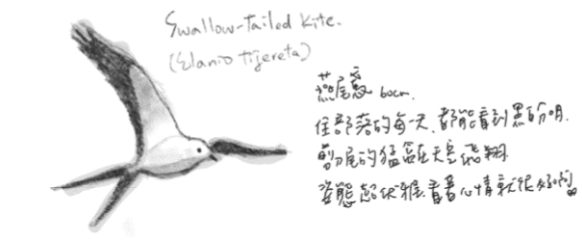 Swallow-tailed kite.
(Elanio tijereta)
燕尾鳶 60cm.
住部落的每一天,都能看到黑白分明.
剪刀尾的猛禽在天空飛翔
姿態超優雅.看著心情就很好啊